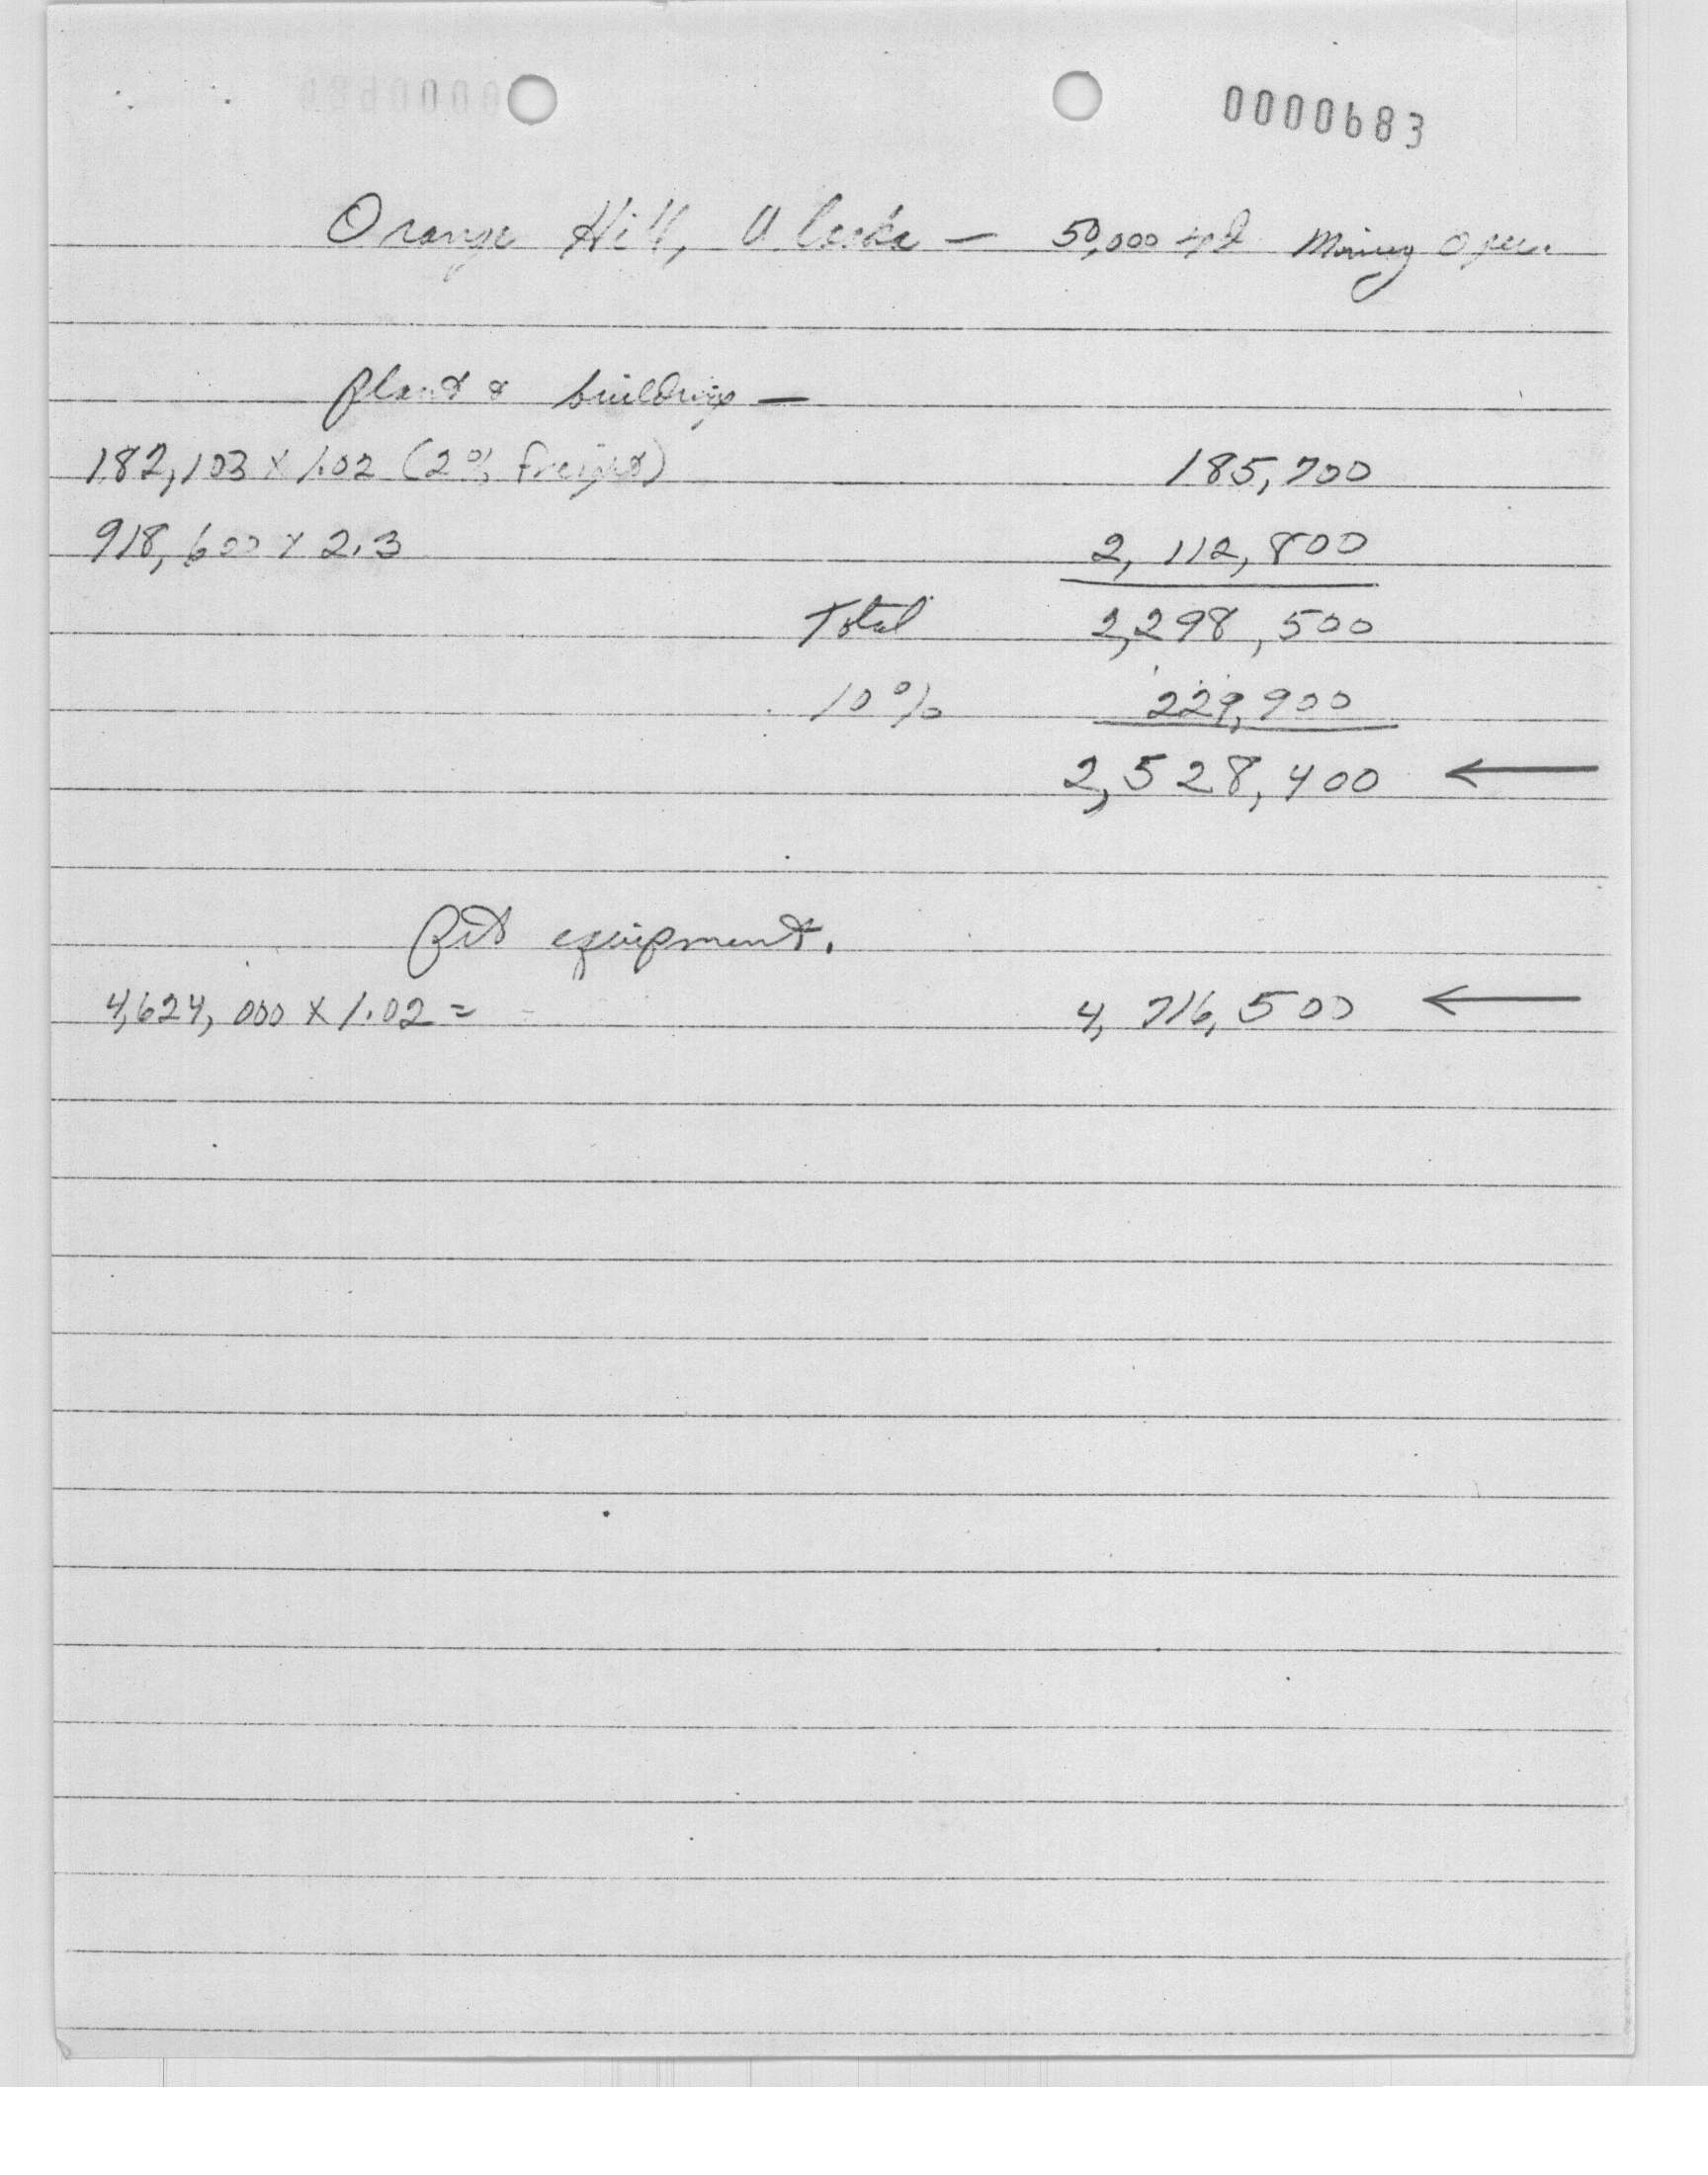 0000683
Orange Hill, Alaska — 50,000 tpd Mining Oper.
Plant & buildings —
182,103 x 1.02 (2% freight) 185,700
918,600 x 2.3 2,112,800
Total 2,298,500
10% 229,900
2,528,400 ←
Pit equipment.
4,624,000 x 1.02 = 4,716,500 ←